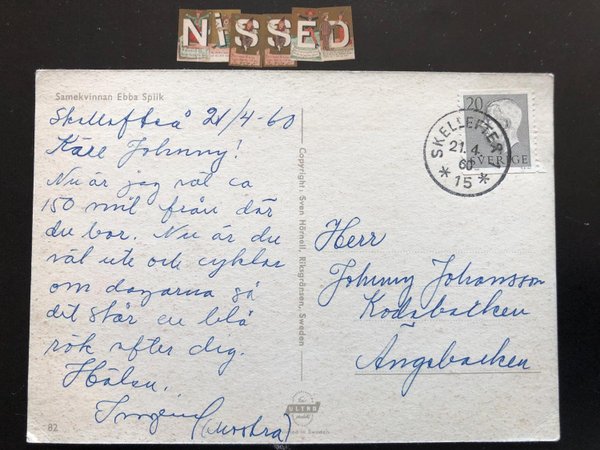 NiSSED
Samekvinnan Ebba Spiik
Skellefteå 21/4-60
Käre Johnny!
Nu är jag väl ca
150 mil från där
du bor. Nu är du
väl ute och cyklar
om dagarna så
det står en blå
rök efter dig.
Hälsn.
(mostra)
82
Copyright: Sven Hörnell, Riksgränsen, Sweden
20
SVERIGE
SKELLEFTEÅ 1
21.4.
60
* 15 *
Herr
Johnny Johansson
Kodabacken
Ängebacken
ULTRA
Printed in Sweden